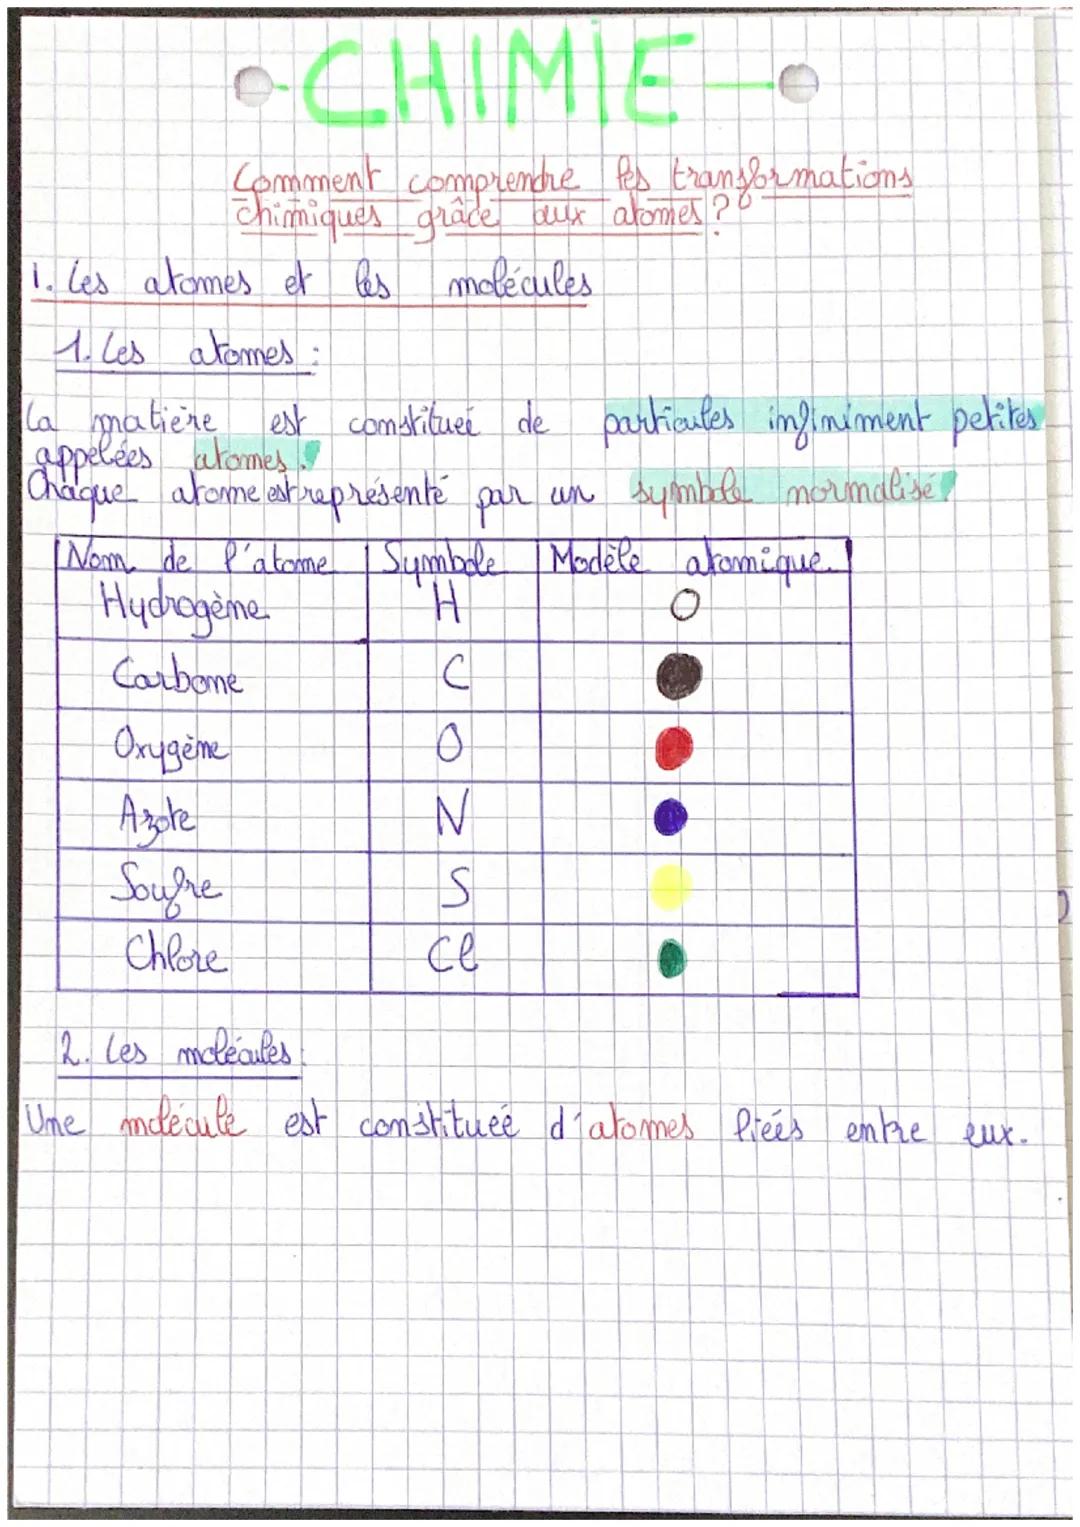 CHIMIE
Comment comprendre les transformations
chimiques grâce aux atomes ?
1. Les atomes et les molécules
1. Les atomes :
La matière est constituée de particules infiniment petites
appelées atomes.
Chaque atome est représenté par un symbole normalisé
Nom de l'atome Symbole Modèle atomique
Hydrogène H
Carbone C
Oxygène O
Azote N
Soufre S
Chlore Cl
2. Les molécules :
Une molécule est constituée d'atomes liés entre eux.